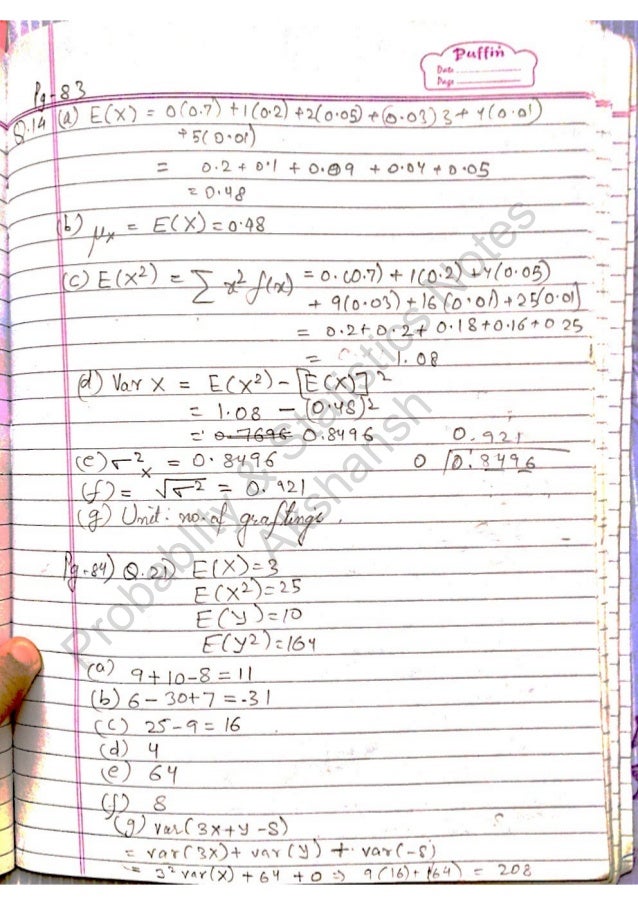 Puffin
Date
Page
Pg-83
Q.14 (a) E(X) = 0(0.7) + 1(0.2) + 2(0.05) + (0.03) 3 + 4(0.01)
+ 5(0.01)
= 0.2 + 0.1 + 0.09 + 0.04 + 0.05
= 0.48
(b) μx = E(X) = 0.48
(c) E(X²) = Σ x² f(x) = 0.(0.7) + 1(0.2) + 4(0.05)
+ 9(0.03) + 16(0.01) + 25(0.01)
= 0.2 + 0.2 + 0.18 + 0.16 + 0.25
= 1.08
(d) Var X = E(X²) - [E(X)]²
= 1.08 - (0.48)²
= 0.7696 0.8496
(e) σ²x = 0.8496
0.921
0 0.8496
(f) = √σ² = 0.921
(g) Unit: no. of graftings.
Pg-84) Q.22) E(X) = 3
E(X²) = 25
E(Y) = 10
E(Y²) = 164
(a) 9 + 10 - 8 = 11
(b) 6 - 30 + 7 = -31
(c) 25 - 9 = 16
(d) 4
(e) 64
(f) 8
(g) var(3X + Y - 8)
= var(3X) + var(Y) + var(-8)
= 3² var(X) + 64 + 0 ⇒ 9(16) + (64) = 208
Probablity & Statistics Notes
Akshansh